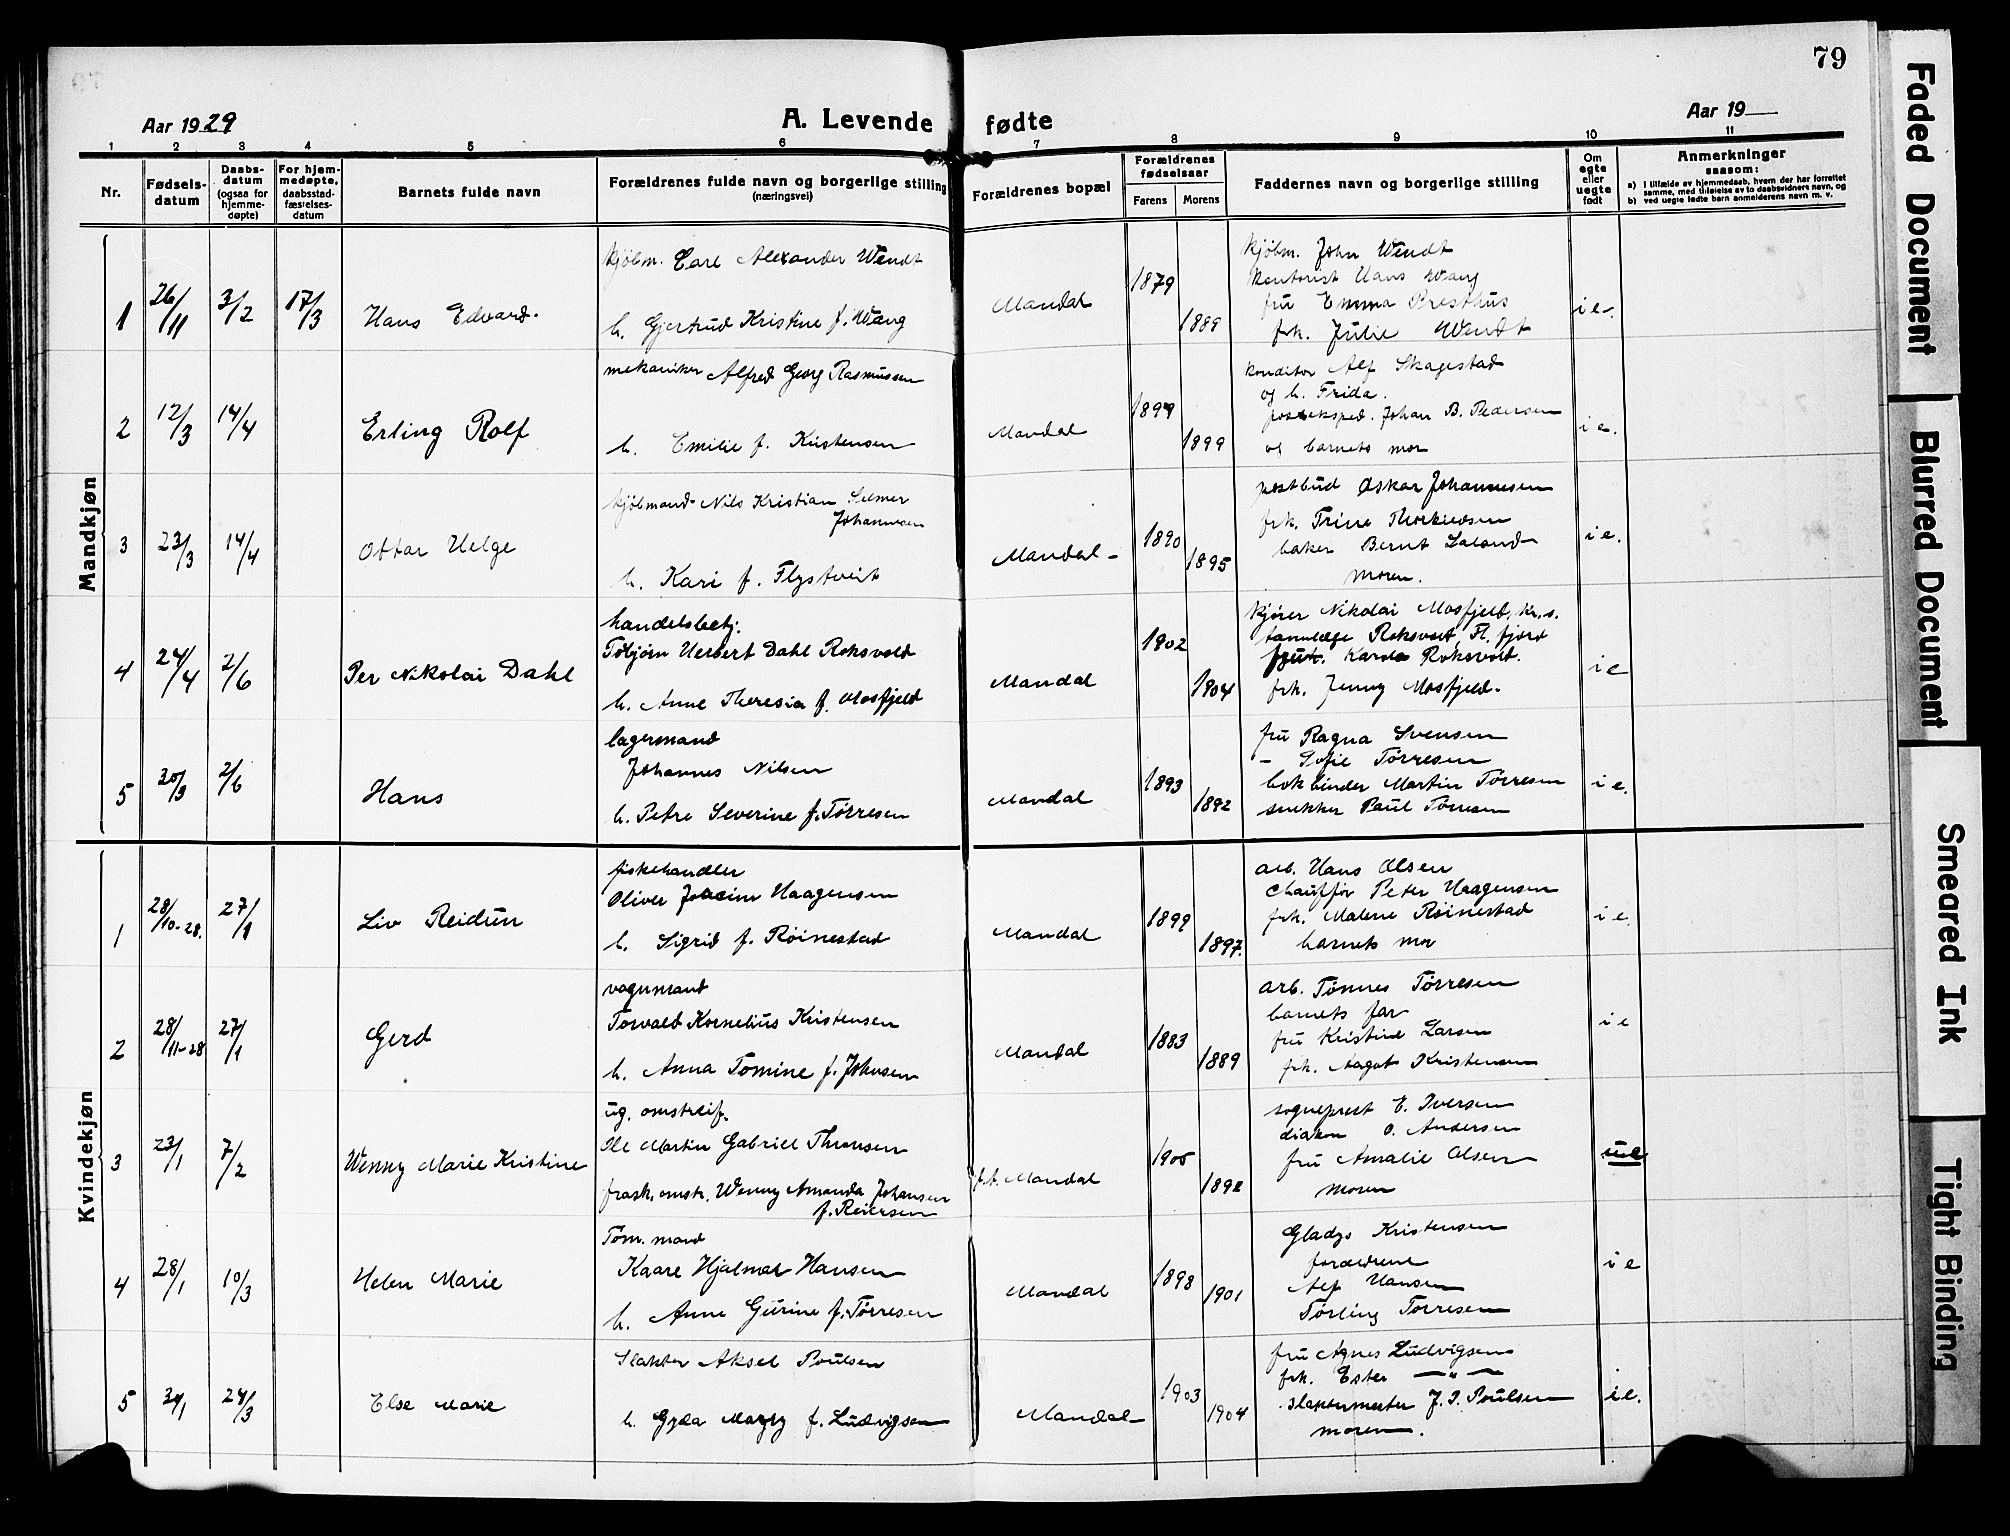 79
Aar 1929
A. Levende fødte
Aar 19
1 2 3 4 5 6 7 8 9 10 11
Nr.
Fødsels-datum
Daabs-datum (ogsaa for hjemme-døpte)
For hjem-medøpte, daabsstad-fæstelses-datum
Barnets fulde navn
Forældrenes fulde navn og borgerlige stilling (næringsvei)
Forældrenes bopæl
Forældrenes fødselsaar
Farens
Morens
Faddernes navn og borgerlige stilling
Om egte eller uegte født
Anmerkninger saasom:
a) i tilfælde av hjemmedaab, hvem der har forrettet samme, med tilføielse av to daabsvidners navn, og
b) ved uegte fødte barn anmelderens navn m. v.
Mandkjøn
1 26/11 3/2 17/3 Hans Edvard.
kjøbm. Carl Alexander Wendt
h. Gjertrud Kristine f. Wang
Mandal 1879 1889
kjøbm. John Wendt
kontorist Hans Wang
fru Emma Presthus
frk. Julie Wendt
i e.
2 12/3 14/4 Erling Rolf
mekaniker Alfred Georg Rasmussen
h. Emilie f. Kristensen
Mandal 1899
konditor Alf Skagestad
og h. Frida.
posteksped. Johan B. Pedersen
og barnets mor
i e.
3 23/3 14/4 Ottar Helge
kjøbmand Nils Kristian Selmer
Johannesen
h. Kari f. Flystveit
Mandal 1890 1895
postbud Oskar Johannesen
frk. Trine
baker Bernt Laland
moren.
i e.
4 24/4 2/6 Per Nikolai Dahl
handelsbetj.
Tobjørn Herbert Dahl Roksvold
h. Anne Theresia f. Mosfjeld
Mandal 1902 1904
kjører Nikolai Mosfjeld, Kr.s.
tannlæge Roksvold, Fl. fjord
Roksvold.
frk. Jenny Mosfjeld.
i e
5 30/3 2/6 Hans
lagermand
Johannes Nilsen
h. Petre Severine f. Tørresen
Mandal 1893 1892
fru Ragna Svensen
– Sofie Tørresen
bokbinder Martin Tørresen
snekker Paul Tørresen
i e.
Kvindekjøn
1 28/10-28. 27/1 Liv Reidun
fiskehandler
Oliver Joacim Haagensen
h. Sigrid f. Røinestad
Mandal 1899 1897.
arb. Hans Olsen
chauffør Peter Haagensen
frk. Malene Røinestad
barnets mor
i e.
2 28/11-28 27/1 Gerd
vognmand
Torvald Kornelius Kristensen
h. Anna Tomine f. Johnsen
Mandal 1883 1889
arb. Tønnes Tørresen
barnets far
fru Kristine Larsen
frk. Aagot Kristensen
i e
3 23/1 7/2 Wenny Marie Kristine
ug. omstreif.
Ole Martin Gabriell Thorsen
frask. omstr. Wenny Amanda Johansen
f. Reiersen
f.t. Mandal
sogneprest E. Iversen
diakon O. Andersen
fru Amalie Olsen
moren
u e
4 28/1 10/3 Helen Marie
Tøm. mand
Kaare Hjalmar Hansen
h. Anne Gurine f. Tørresen
Mandal 1898 1901
Gladys Kristensen
forældrene
Alf Hansen
Tørling Tørresen
i e
5 24/3 Else Marie
Slakter Aksel Poulsen
h. Gyda Magny f. Ludvigsen
Mandal 1903 1904
fru Agnes Ludvigsen
frk. Ester —"—
slaktermester J. I. Poulsen
moren.
i e.
Faded Document
Blurred Document
Smeared Ink
Tight Binding